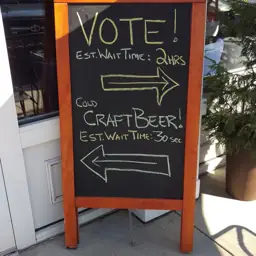 VOTE!
EST. WAIT TIME: 2HRS
COLD
CRAFT BEER!
EST. WAIT TIME: 30 SEC